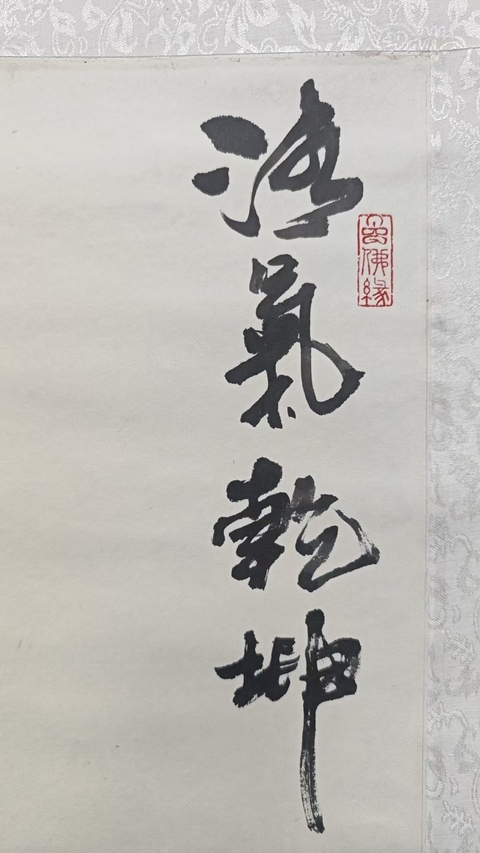 浩氣乾坤
佛緣